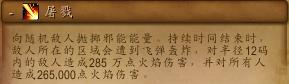 - 屠戮
向随机敌人抛掷邪能能量。持续时间结束时，
敌人所在的区域会遭到飞弹轰炸，对半径12码
内的敌人造成285 万点火焰伤害，并对所有人
造成265,000点火焰伤害。